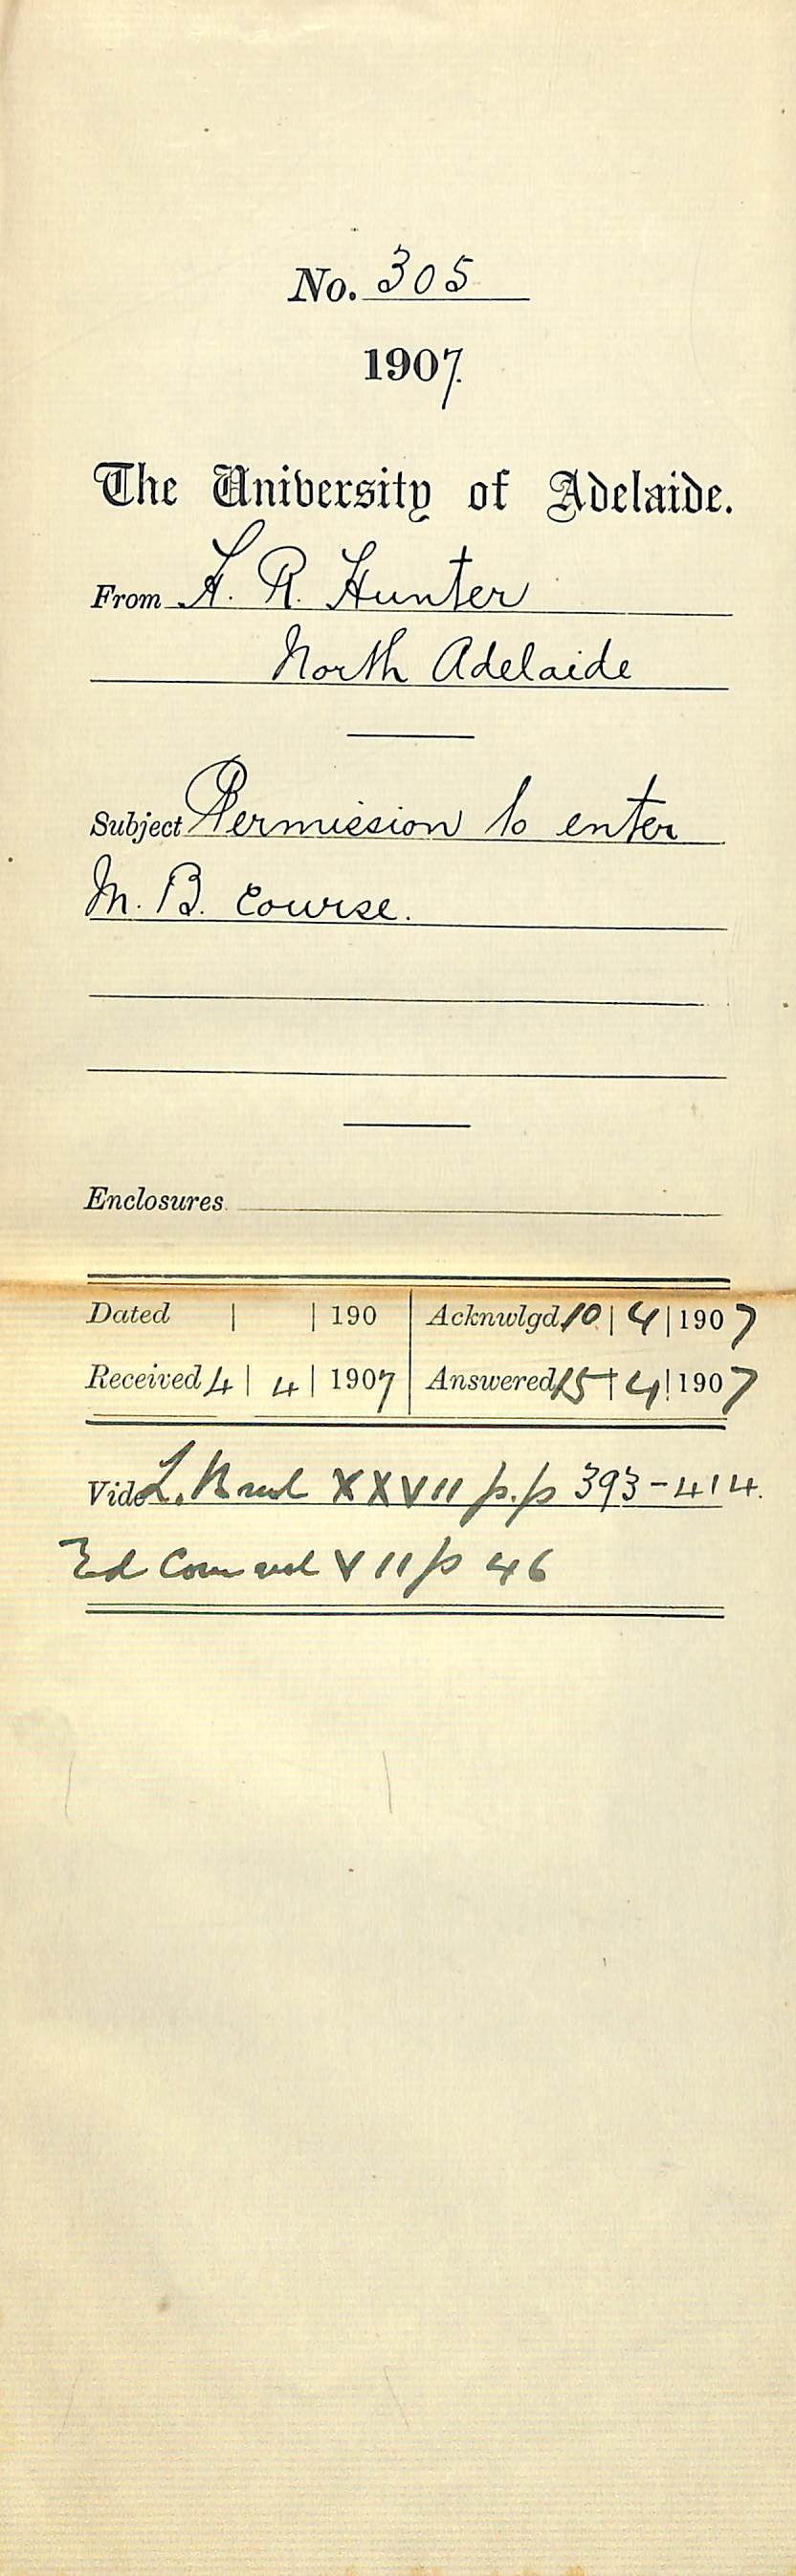 No. 305
1907.
The University of Adelaide.
From H. R. Hunter
North Adelaide
Subject Permission to enter
M. B. Course.
Enclosures
Dated | | 190 Acknwlgd. 10 | 4 | 1907
Received 4 | 4 | 1907 Answered 15 | 4 | 1907
Vide L. B vol XXVII p.p 393-414.
Ed Com vol VII p 46